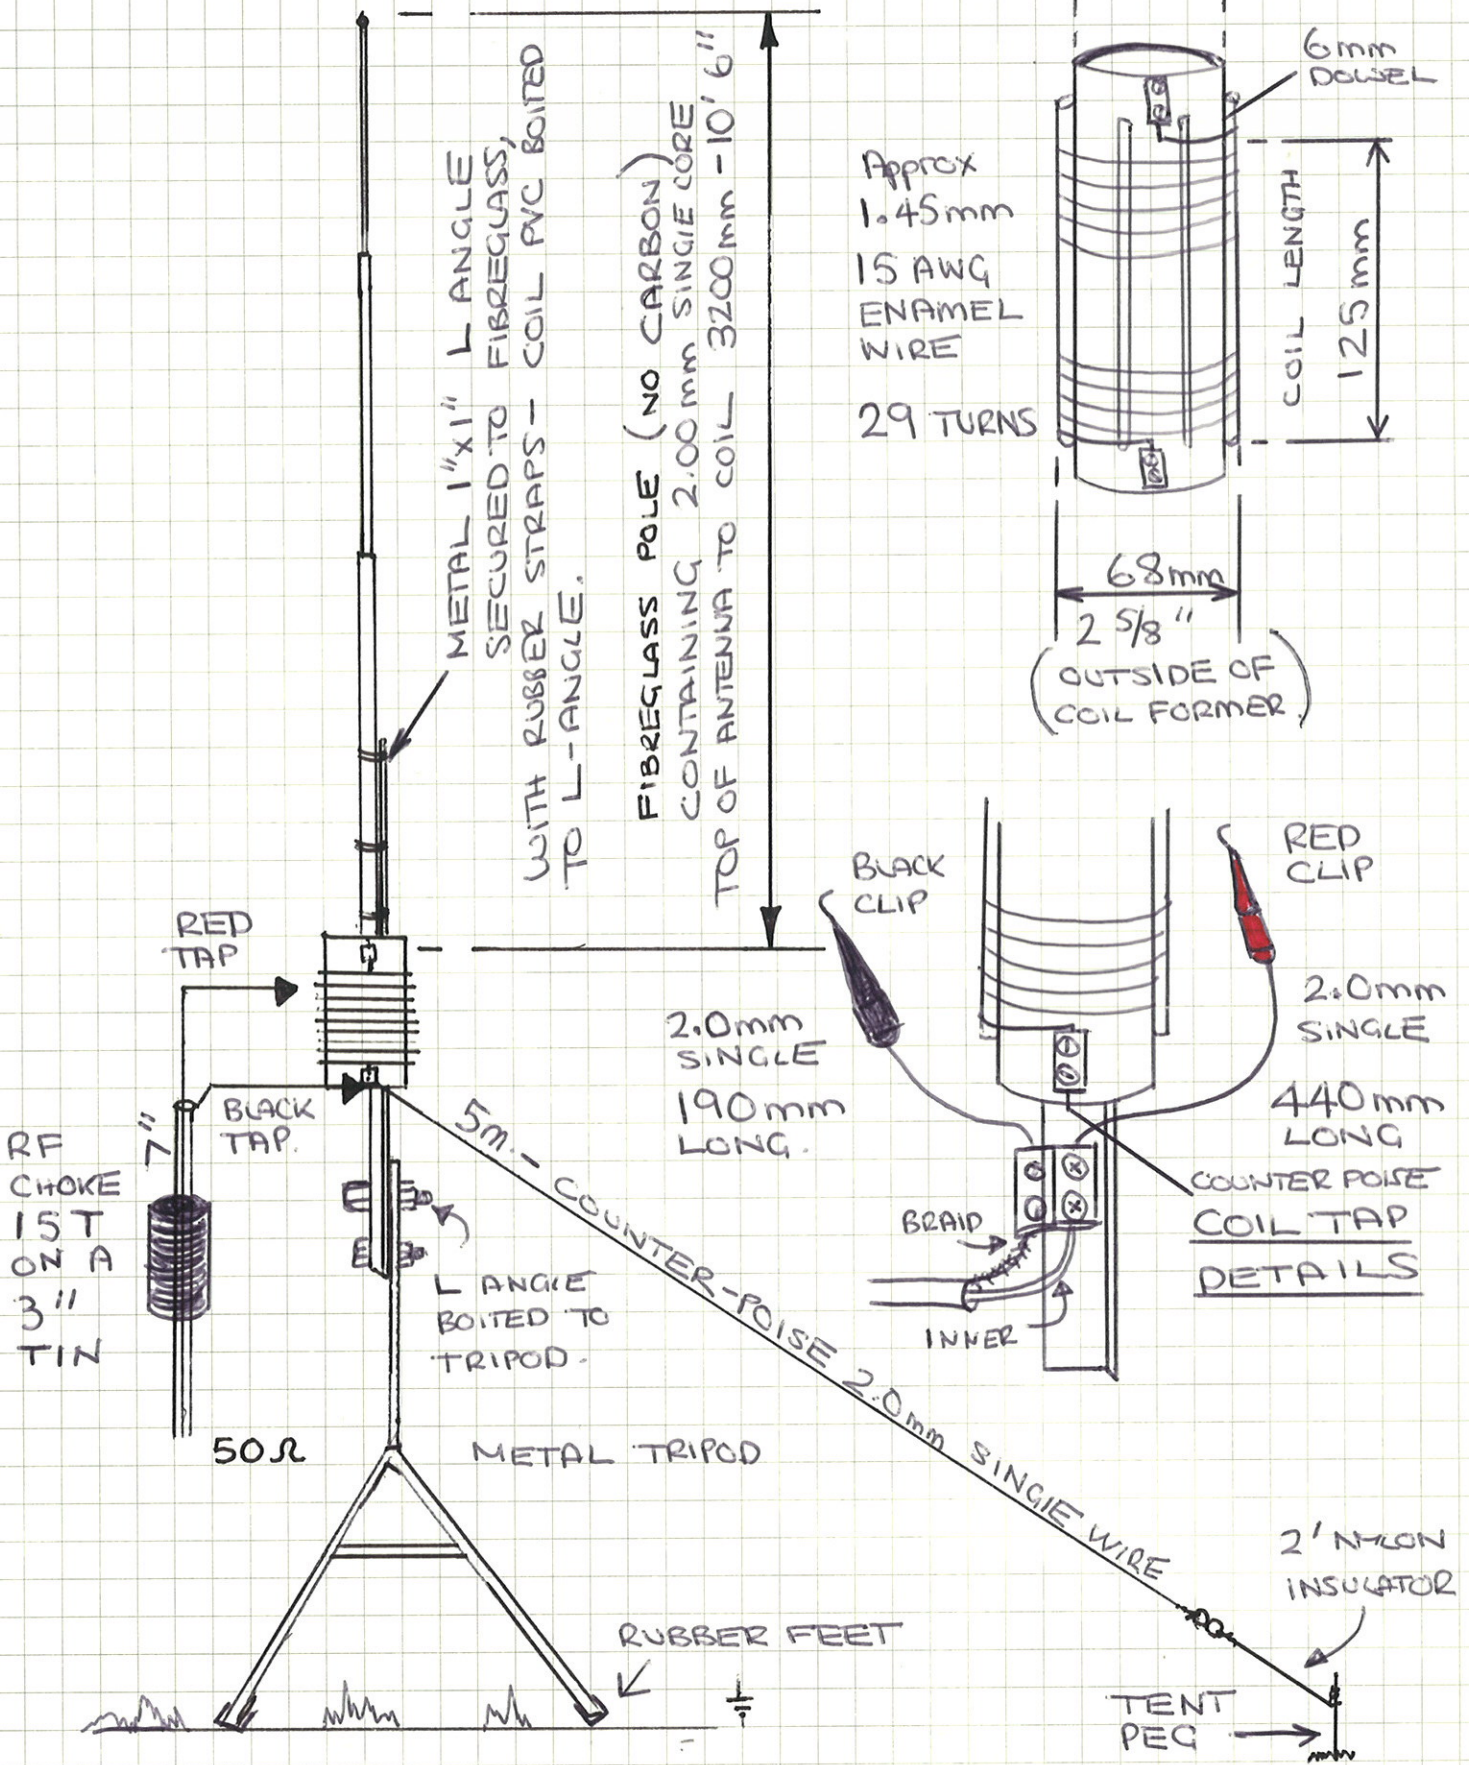 METAL 1"x1" L ANGLE
SECURED TO FIBREGLASS,
WITH RUBBER STRAPS - COIL PVC BOLTED
TO L-ANGLE.
FIBREGLASS POLE (NO CARBON)
CONTAINING 2.00mm SINGLE CORE
TOP OF ANTENNA TO COIL 3200mm - 10' 6"
6mm
DOWEL
Approx
1.45mm
15 AWG
ENAMEL
WIRE
29 TURNS
COIL LENGTH
125mm
68mm
2 5/8"
(OUTSIDE OF
COIL FORMER)
RED
TAP
BLACK
TAP.
7"
RF
CHOKE
15T
ON A
3"
TIN
50Ω
L ANGLE
BOLTED TO
TRIPOD.
METAL TRIPOD
5m. - COUNTER-POISE 2.0mm SINGLE WIRE
RUBBER FEET
2' NYLON
INSULATOR
TENT
PEG
BLACK
CLIP
RED
CLIP
2.0mm
SINGLE
190mm
LONG.
2.0mm
SINGLE
440mm
LONG
COUNTER POISE
COIL TAP
DETAILS
BRAID
INNER